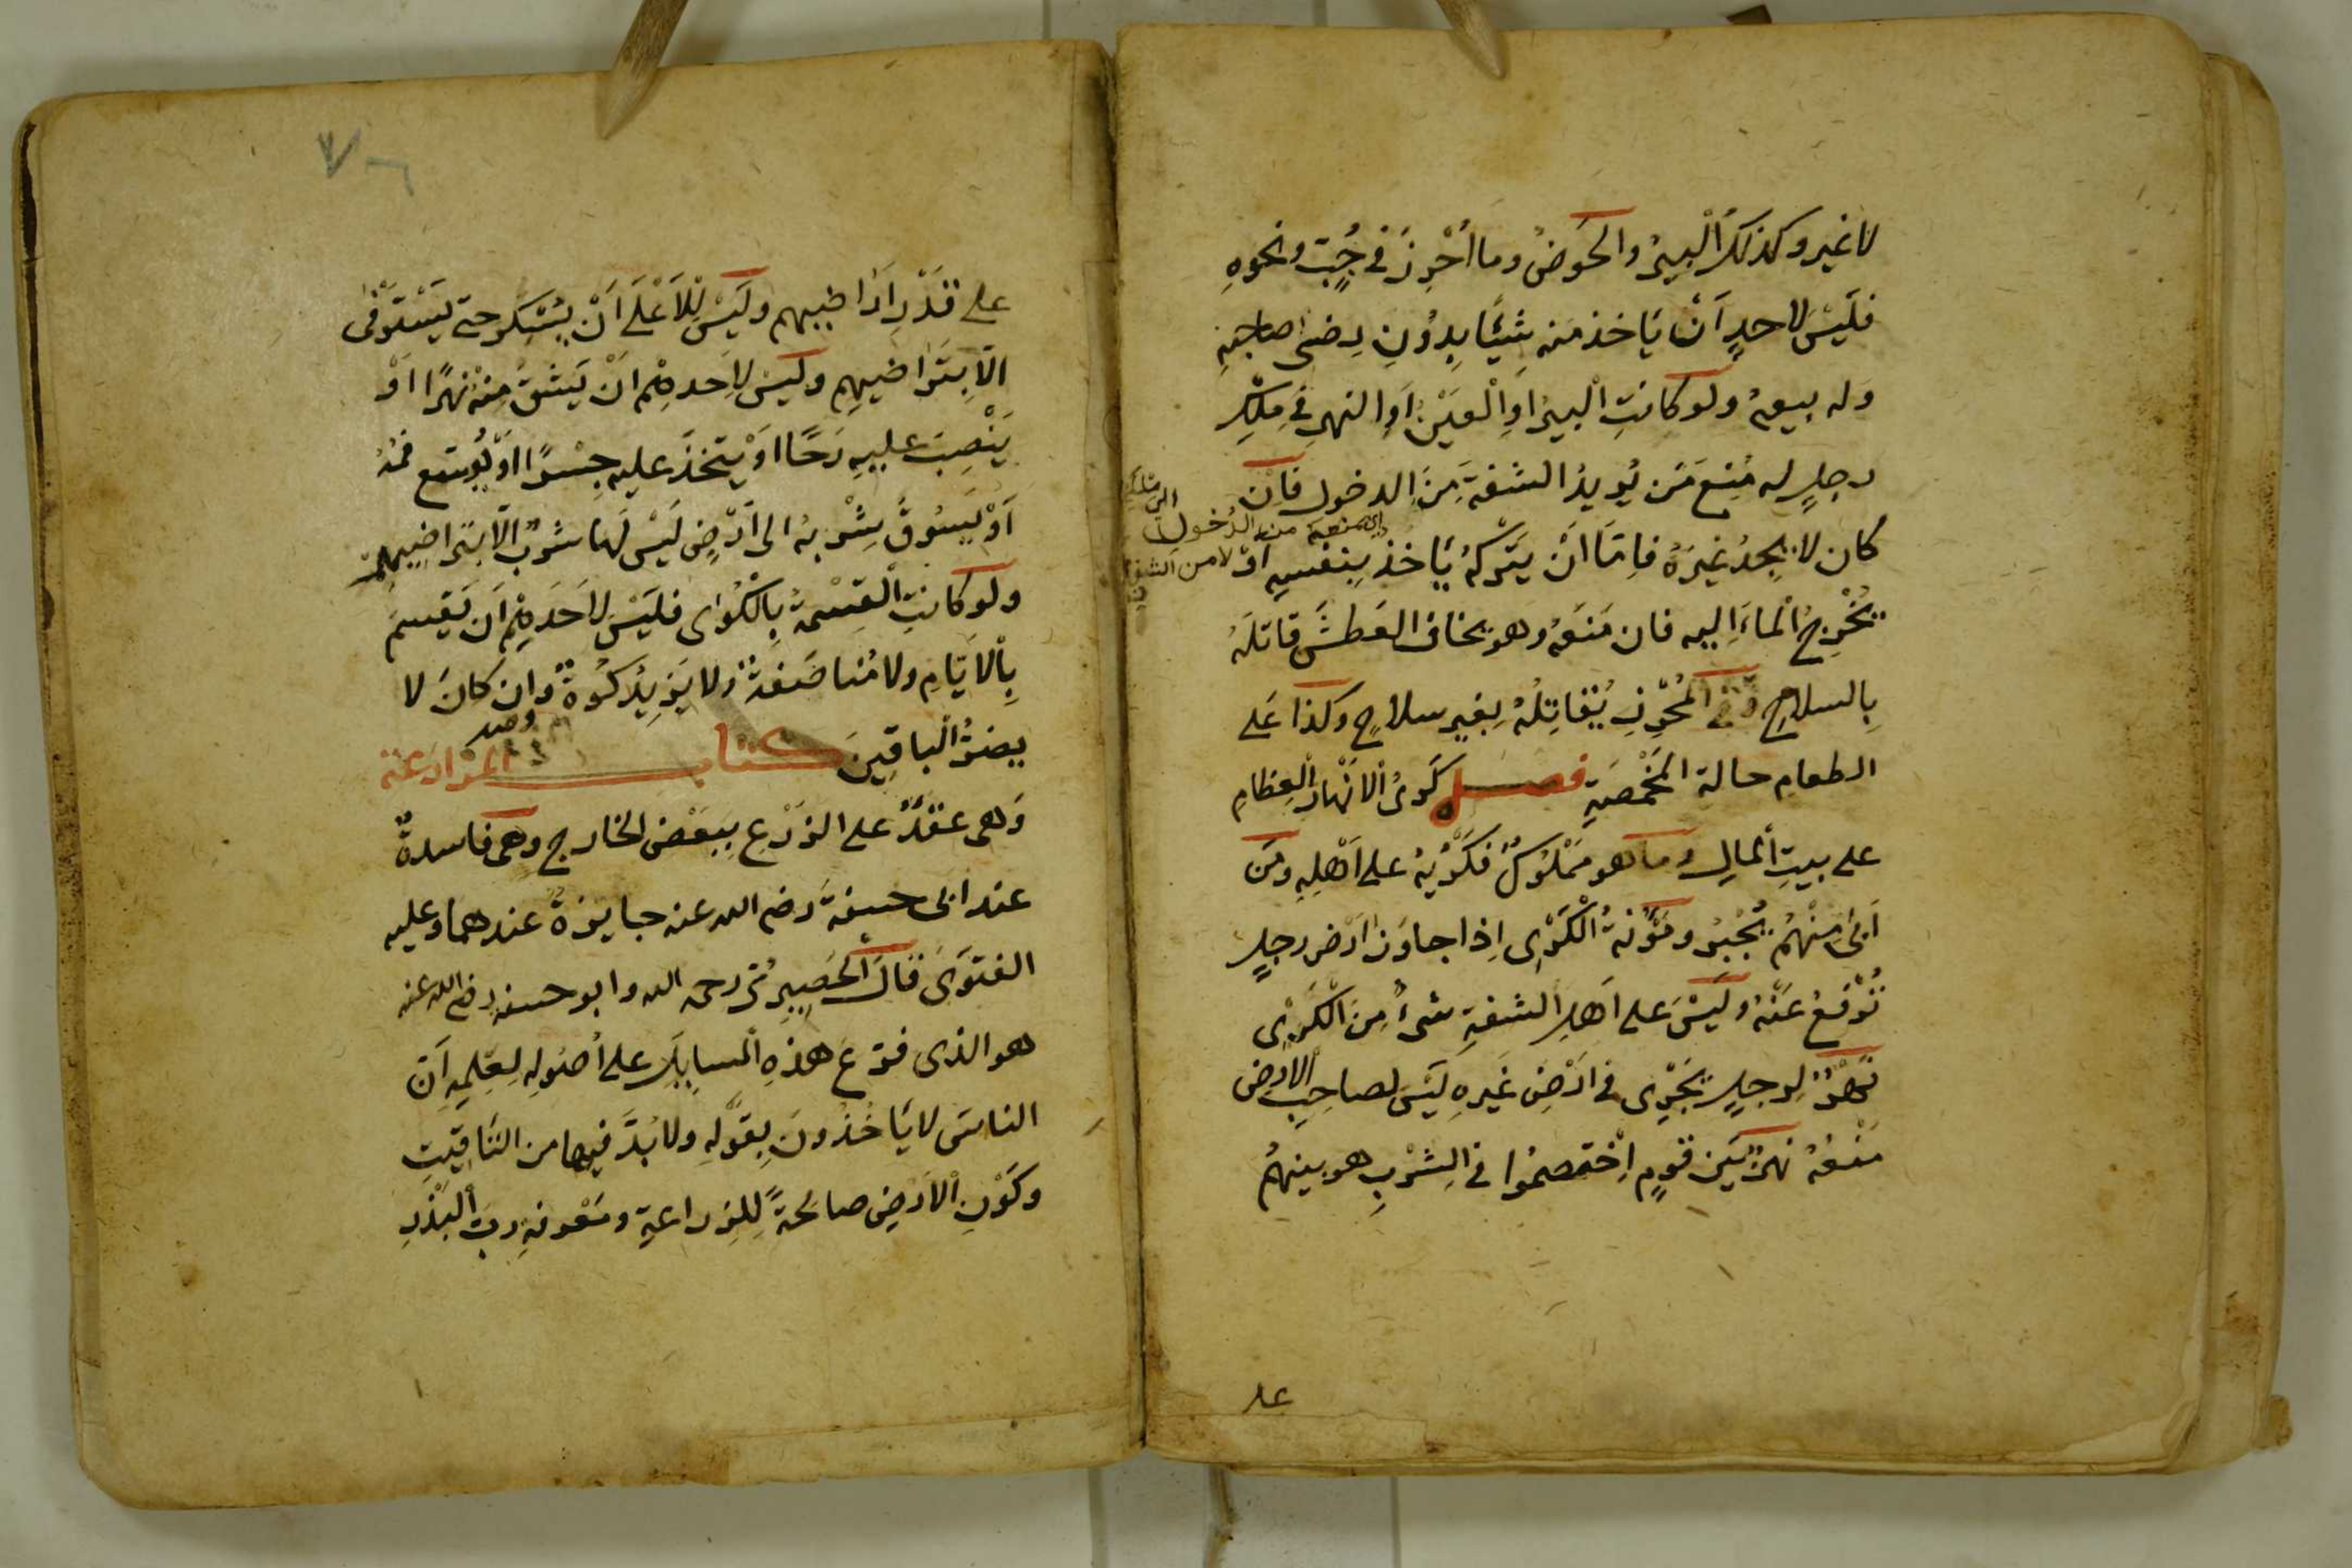 لا غير وكذلك الْبِيرُ والحَوضُ وما اُحْرِزَ في جُبّ ونحوهِ
فلَيْسَ لاحدٍ اَنْ يَاخذ منه شَيْئًا بِدُونِ رِضى صاحبِه
وَله بيعهُ ولو كانتِ الْبيرُ اوِ الْعَيْنُ اوِ النهر في مِلْكِ
رجلٍ له مَنْعُ مَن يُريدُ الشفةَ مِنَ الدخول فاِن
اى منعه من الدُخول
لا من الشفة
كان لا يجدُ غيرَهُ فاِمّا اَنْ يَتْركهُ يَاخذ بِنفسِهِ اَوْ
يُخْرِجُ الْماءَ اِليه فان مَنَعَهُ وهو يخاف العَطشَ قاتلَهُ
بِالسلاحِ وفى الْمُحْرَزِ يُقَاتِلُهُ بِغيرِ سلاحٍ وكذا عَلى
الطعامِ حالة المَخْمصَةِ فصل كَرْىُ الْاَنْهار الْعِظامِ
على بيتِ المالِ وما هو مَمْلوكٌ فكَرْيُهُ على اَهْلِهِ ومَن
اَبى مِنْهُمْ يُجْبَرُ ومَؤُنةُ الْكَرْىِ اِذا جاوَزَ اَرْضَ رجلٍ
تُرْفَعُ عَنْهُ ولَيْسَ على اَهلِ الشفةِ شىءٌ مِنَ الْكَرْىِ
نَهْرٌ لِرجلٍ يَجْرِى في اَرْضِ غَيرِهِ لَيْسَ لصاحِبِ الارضِ
مَنْعُهُ نهرٌ بَيْن قومٍ اِخْتصمُوا في الشِرْبِ هو بينهُم
على
على قَدْرِ اَراضِيهم ولَيْسَ لِلْاَعْلَى اَنْ يَسْكُرَ حتى يَسْتَوْفى
الّا بِتَراضِيهِم ولَيْسَ لِاَحدهِمْ انْ يَشُقّ مِنْهُ نهرًا اَوْ
يَنْصِبَ عليهِ رَحًا اَوْ يتّخذَ عليه جِسْرًا اَوْ يُوسّع فمَهُ
اَوْ يَسُوقَ شِرْبهُ الى اَرْضٍ لَيْسَ لَها شِرْبٌ الّا بتراضِيهِمْ
ولو كانتِ الْقِسْمةُ بِالْكُوَى فليْسَ لاَحَدهِمْ اَن يَقسِمَ
بِالْاَيّامِ ولا مُناصَفةً ولا يَزِيدُ كُوّةً وان كانَ لا
يضرُّ الْباقِينَ كتاب المزارعة
وَهى عقْدٌ على الزرْعِ بِبَعْضِ الخارجِ وهى فاسدةٌ
عند ابى حنيفةَ رضى الله عنه جايزةٌ عندهما وعليه
الفتوَى قالَ الْحَصِيرِىُّ رحمه الله وابو حنيفه رضى الله عنه
هو الذى فرّعَ هذهِ الْمسايِلَ على اُصُولِهِ لِعِلمِهِ اَنَّ
الناسَ لا يَاخُذُونَ بِقوْلِهِ ولا بُدَّ فيها من التَاقِيتِ
وكَوْنِ الْاَرْضِ صالحةً لِلزراعةِ ومَعْرفةِ ربِّ الْبَذْرِ